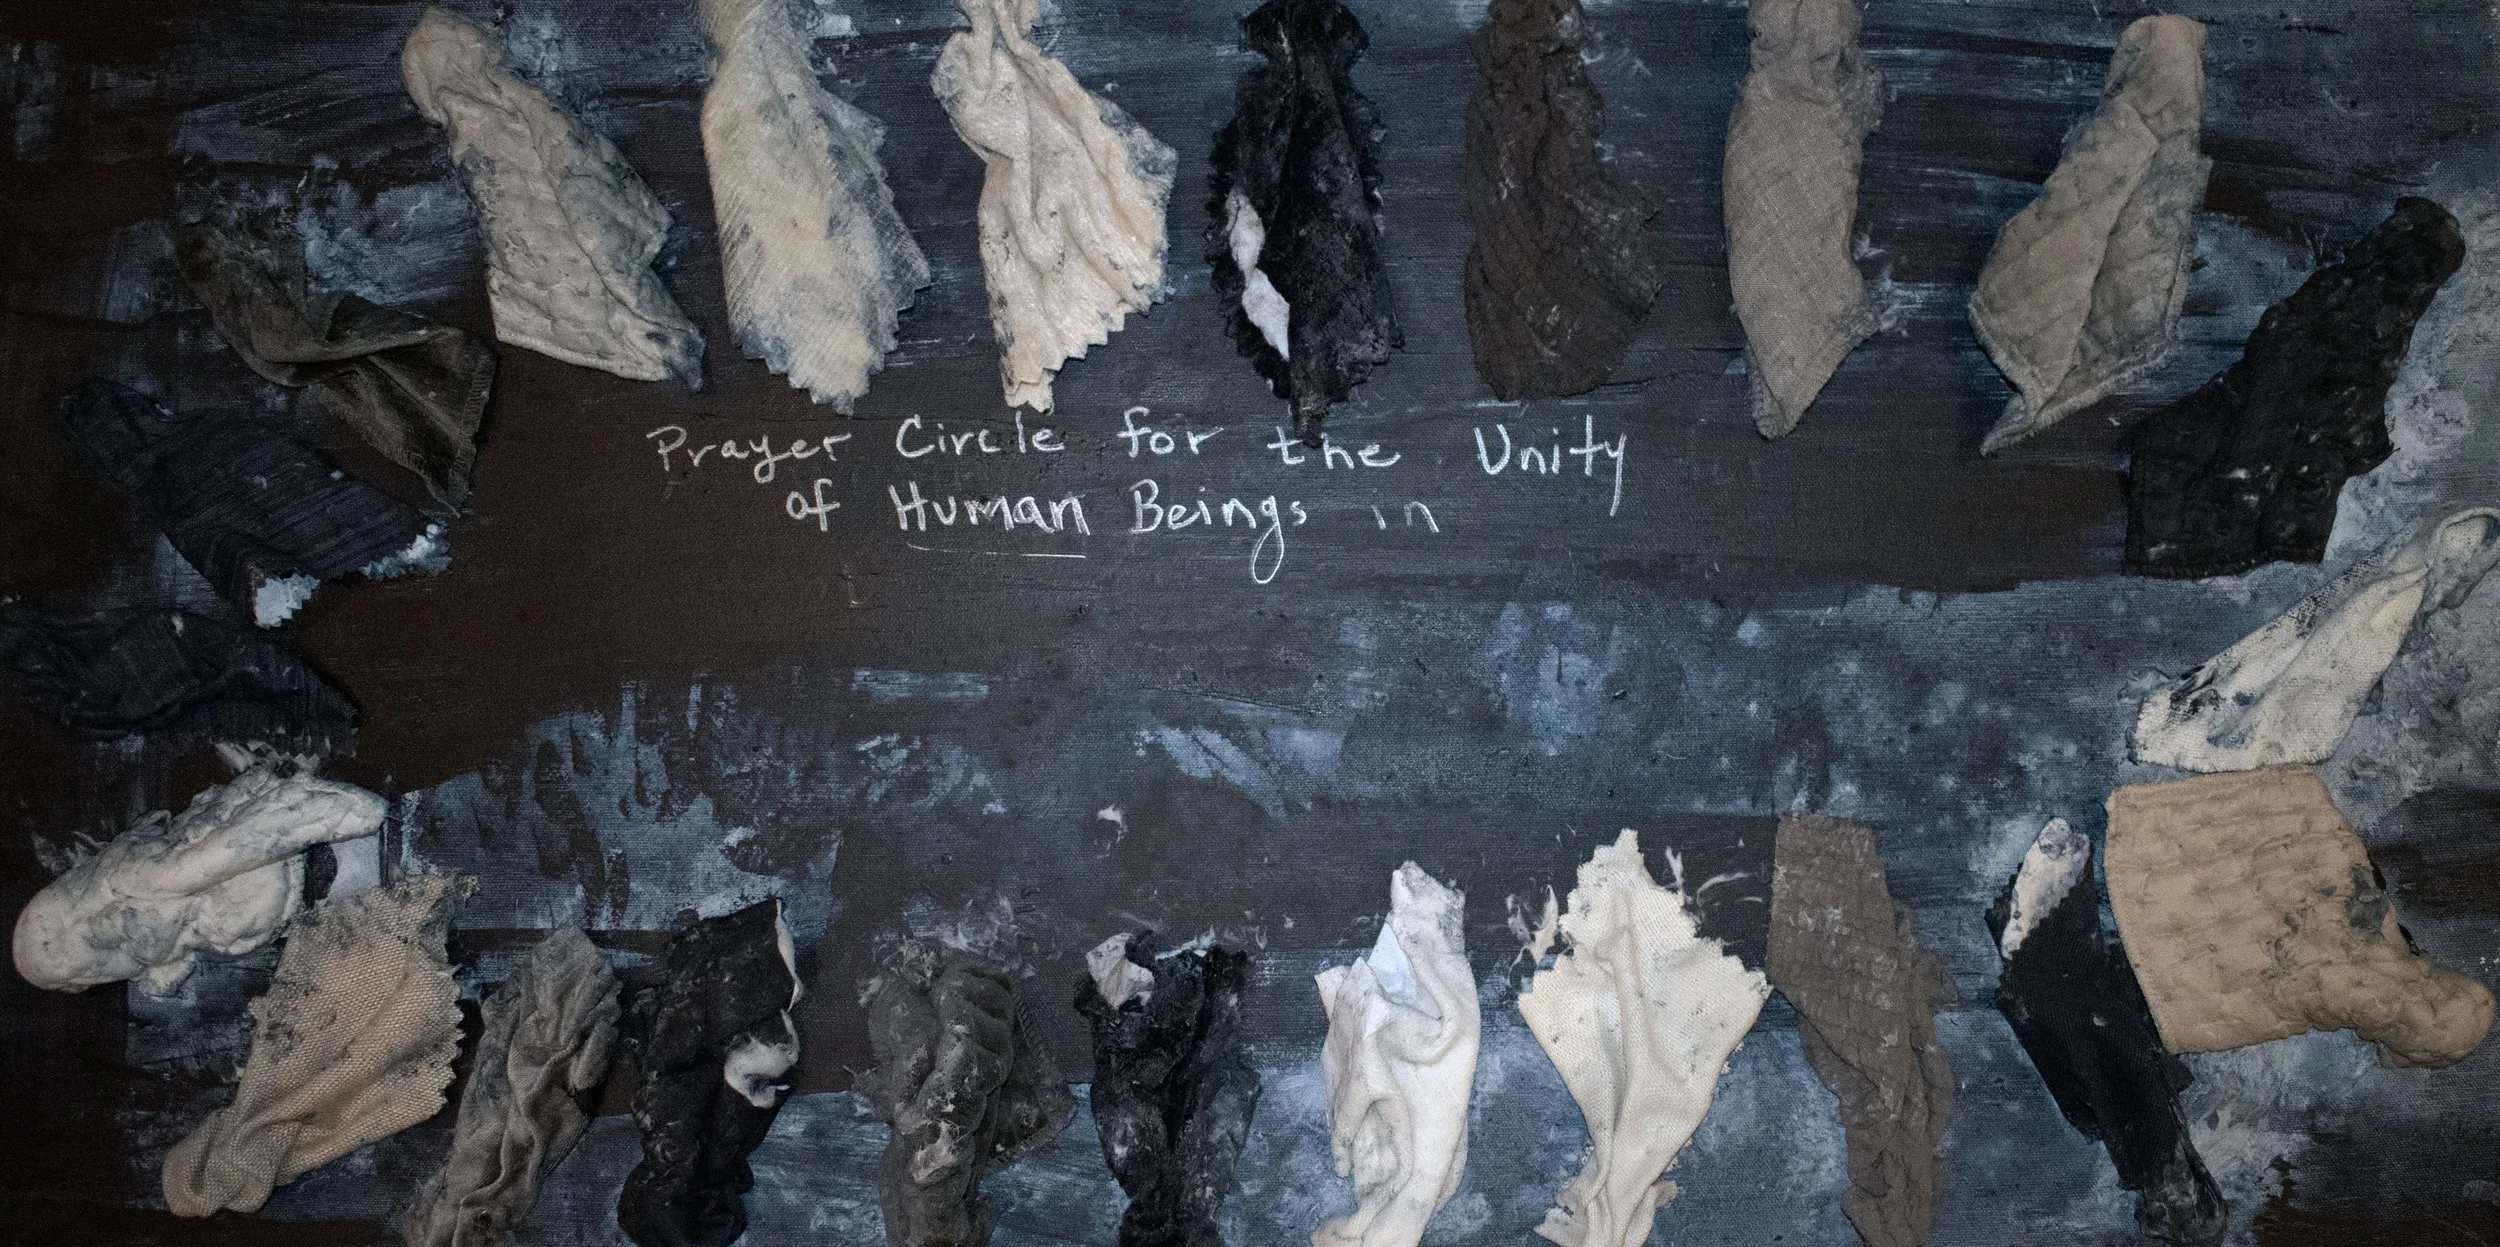 Prayer Circle for the Unity
of Human Beings in